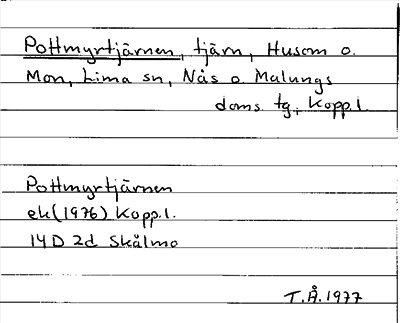 Pottmyrtjärnen, tjärn, Husom o.
Mon, Lima sn, Nås o. Malungs
doms. tg, Kopp.l.
Pottmyrtjärnen
ek (1976) Kopp.l.
14D 2d Skålmo
T.Å. 1977